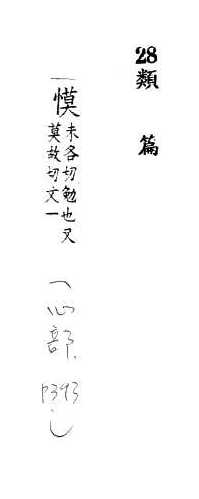 28
類篇
慔末各切勉也又
莫故切文一
(心部.
p393